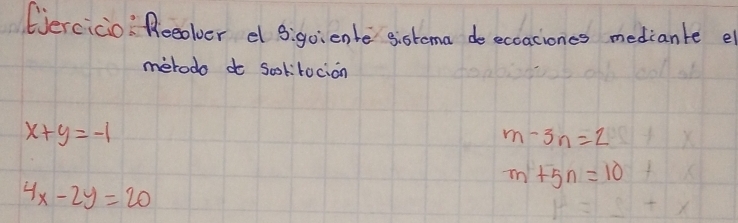 Ejercicio: Resolver el siguiente sistema de ecuaciones mediante el
método de sustitución
x+y=-1
4x-2y=20
m-3n=2
m+5n=10